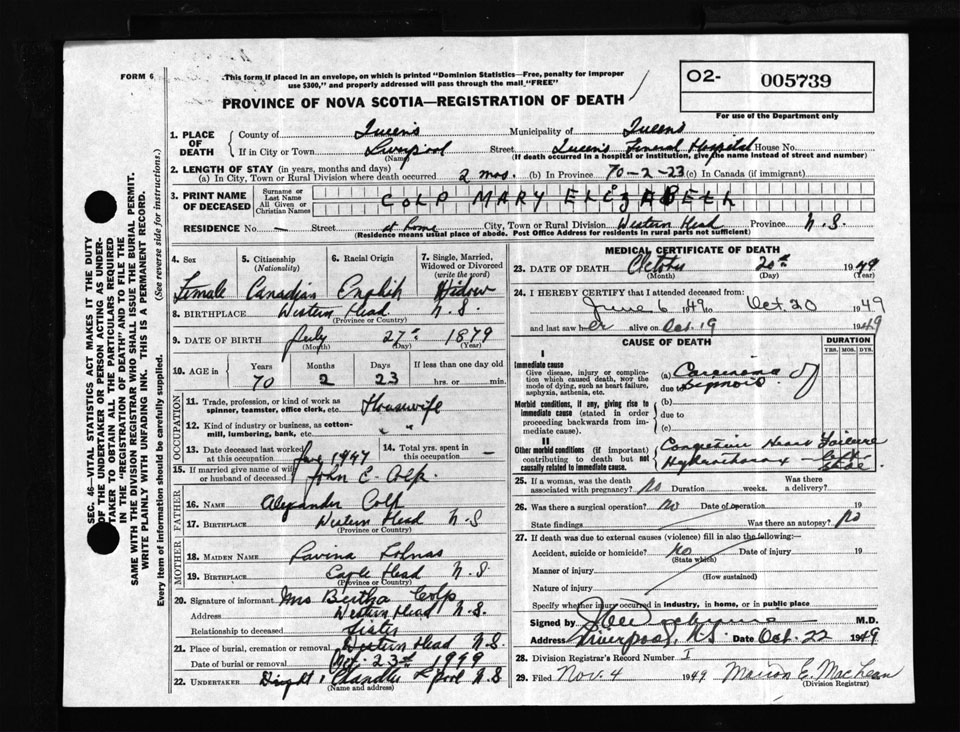 FORM 6
This form if placed in an envelope, on which is printed "Dominion Statistics—Free, penalty for improper
use $300," and properly addressed will pass through the mail "FREE"
O2- 005739
PROVINCE OF NOVA SCOTIA—REGISTRATION OF DEATH
For use of the Department only
1. PLACE OF DEATH County of Queens Municipality of Queens
If in City or Town Liverpool (Name) Street Queens General Hospital House No.
(If death occurred in a hospital or institution, give the name instead of street and number)
2. LENGTH OF STAY (in years, months and days)
(a) In City, Town or Rural Division where death occurred 2 mos. (b) In Province 70-2-23 (c) In Canada (if immigrant)
3. PRINT NAME OF DECEASED Surname or Last Name All Given or Christian Names COLP MARY ELIZABETH
RESIDENCE No. — Street at home City, Town or Rural Division Western Head Province N.S.
(Residence means usual place of abode. Post Office Address for residents in rural parts not sufficient)
4. Sex Female
5. Citizenship (Nationality) Canadian
6. Racial Origin English
7. Single, Married, Widowed or Divorced (write the word) Widow
8. BIRTHPLACE Western Head N.S.
(Province or Country)
9. DATE OF BIRTH July 27th 1879
(Month) (Day) (Year)
10. AGE in Years Months Days If less than one day old
70 2 23 hrs. or min.
OCCUPATION
11. Trade, profession, or kind of work as spinner, teamster, office clerk, etc. Housewife
12. Kind of industry or business, as cotton-mill, lumbering, bank, etc. " "
13. Date deceased last worked at this occupation 1947
14. Total yrs. spent in this occupation —
15. If married give name of wife or husband of deceased John E. Colp.
FATHER
16. Name Alexander Colp
17. BIRTHPLACE Western Head N.S
(Province or Country)
MOTHER
18. MAIDEN NAME Lavina
19. BIRTHPLACE Head N.S
(Province or Country)
20. Signature of informant Mrs Bertha Colp
Address Western Head N.S
Relationship to deceased Sister
21. Place of burial, cremation or removal Western Head N.S.
Date of burial or removal Oct. 23rd 1949
22. UNDERTAKER Chandler L'pool N.S
(Name and address)
MEDICAL CERTIFICATE OF DEATH
23. DATE OF DEATH October 20th 1949
(Month) (Day) (Year)
24. I HEREBY CERTIFY that I attended deceased from:
June 6 1949 to Oct 20 1949
and last saw her alive on Oct. 19 1949
CAUSE OF DEATH DURATION
YRS. MOS. DYS.
I
Immediate cause
Give disease, injury or complication which caused death, NOT the mode of dying, such as heart failure, asphyxia, asthenia, etc.
(a) Carcinoma of
due to Sigmoid
Morbid conditions, if any, giving rise to immediate cause (stated in order proceeding backwards from immediate cause).
(b)
due to
(c)
II
Other morbid conditions (if important) contributing to death but not causally related to immediate cause.
Congestive Heart Failure
Hydrothorax — left side
25. If a woman, was the death associated with pregnancy? No Duration weeks. Was there a delivery?
26. Was there a surgical operation? No Date of operation 19
State findings Was there an autopsy? No
27. If death was due to external causes (violence) fill in also the following:—
Accident, suicide or homicide? No Date of injury 19
(State which)
Manner of injury
(How sustained)
Nature of injury
Specify whether injury occurred in industry, in home, or in public place
Signed by M.D.
Address Liverpool, N.S. Date Oct. 22 1949
28. Division Registrar's Record Number I
29. Filed Nov. 4 1949 Marion E. MacLean
(Division Registrar)
SEC. 46—VITAL STATISTICS ACT MAKES IT THE DUTY
OF THE UNDERTAKER OR PERSON ACTING AS UNDER-
TAKER TO OBTAIN ALL THE PARTICULARS REQUIRED
IN THE "REGISTRATION OF DEATH" AND TO FILE THE
SAME WITH THE DIVISION REGISTRAR WHO SHALL ISSUE THE BURIAL PERMIT.
WRITE PLAINLY WITH UNFADING INK. THIS IS A PERMANENT RECORD.
Every item of information should be carefully supplied. (See reverse side for instructions.)